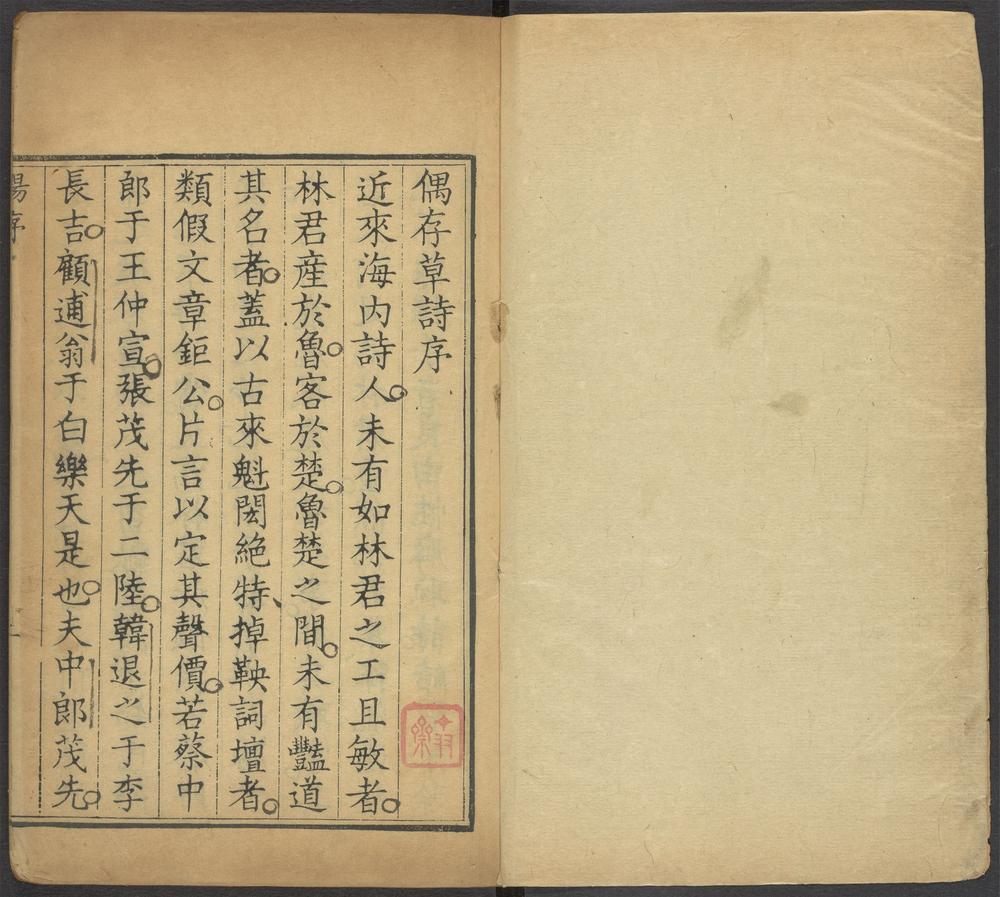 偶存草詩序
近來海内詩人。未有如林君之工且敏者。
林君産於魯。客於楚。魯楚之間。未有豔道
其名者。蓋以古來魁閎絶特、掉鞅詞壇者。
類假文章鉅公。片言以定其聲價。若蔡中
郎于王仲宣。張茂先于二陸。韓退之于李
長吉。顧逋翁于白樂天是也。夫中郎茂先。